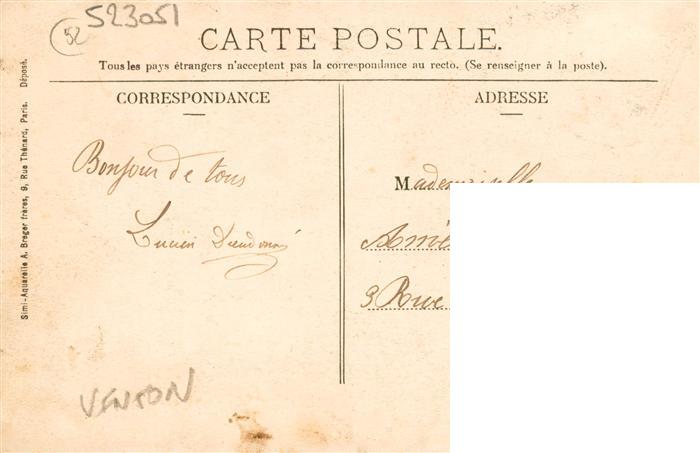 523051
52
CARTE POSTALE.
Tous les pays étrangers n'acceptent pas la correspondance au recto. (Se renseigner à la poste).
CORRESPONDANCE
ADRESSE
Bonjour de tous
Lucien Dieudonné
Mademoiselle
3 Rue
VENTON
Simi-Aquarelle A. Breger frères, 9, Rue Thénard, Paris. Déposé.